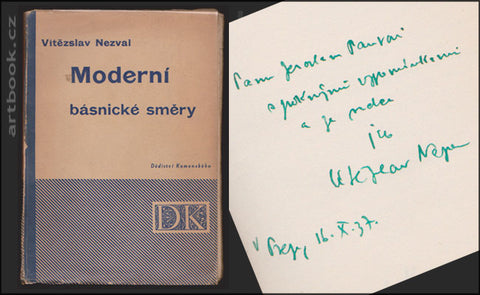 artbook.cz
Vítězslav Nezval
Moderní
básnické směry
Dědictví Komenského
DK
Panu Jaroslavu
s pěknými vzpomínkami
a ze srdce
Vítězslav Nezval
V Praze, 16. X. 37.